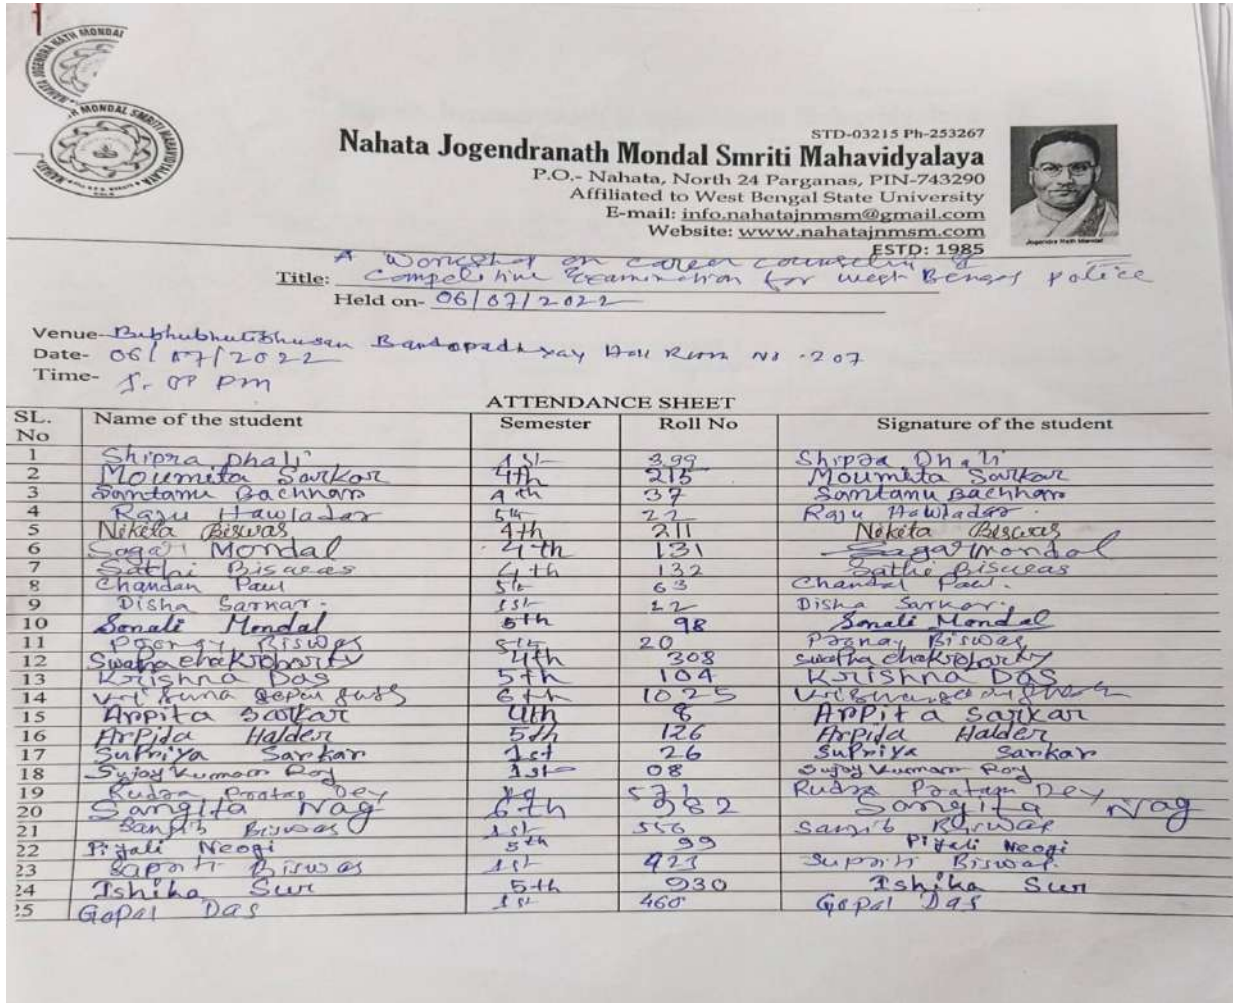 NATH MONDAL
MONDAL SMRITI MAHAVIDYALAYA
STD-03215 Ph-253267
Nahata Jogendranath Mondal Smriti Mahavidyalaya
P.O.- Nahata, North 24 Parganas, PIN-743290
Affiliated to West Bengal State University
E-mail: info.nahatajnmsm@gmail.com
Website: www.nahatajnmsm.com
ESTD: 1985
Jogendra Nath Mandal
A Workshop on career counselin &
Title: Competitive Examination for West Bengal police
Held on- 06/07/2022
Venue- Bibhutibhusan Bandopadhyay Hall Room No -207
Date- 06/07/2022
Time- PM
ATTENDANCE SHEET
SL. No Name of the student Semester Roll No Signature of the student
1 Shipra Dhali 1st 399 Shipra Dhali
2 Moumita Sarkar 4th 215 Moumita Sarkar
3 Santanu Bachhar 4th 37 Santanu Bachhar
4 Raju Hawladar 5th 22 Raju Hawladar
5 Nikita Biswas 4th 211 Nikita Biswas
6 Sagar Mondal 4th 131 Sagar Mondal
7 Sathi Biswas 4th 132 Sathi Biswas
8 Chandan Paul 5th 63 Chandan Paul.
9 Disha Sarkar. 1st 22 Disha Sarkar.
10 Sonali Mondal 5th 98 Sonali Mondal
11 Biswas 5th 20 Biswas
12 Swapna Chakroborty 4th 308 Swapna Chakroborty
13 Krishna Das 5th 104 Krishna Das
14 6th 1025
15 Arpita Sarkar 4th 8 Arpita Sarkar
16 Arpita Halder 5th 126 Arpita Halder
17 Supriya Sarkar 1st 26 Supriya Sarkar
18 Sujoy Kumar Roy 1st 08 Sujoy Kumar Roy
19 Rudra Pratap Dey 571 Rudra Pratap Dey
20 Sangita Nag 6th 982 Sangita Nag
21 Sanjib Biswas 1st 556 Sanjib Biswas
22 Pijali Neogi 5th 99 Pijali Neogi
23 Supriti Biswas 1st 423 Supriti Biswas.
24 Ishika Sur 5th 930 Ishika Sur
25 Gopal Das 1st 460 Gopal Das